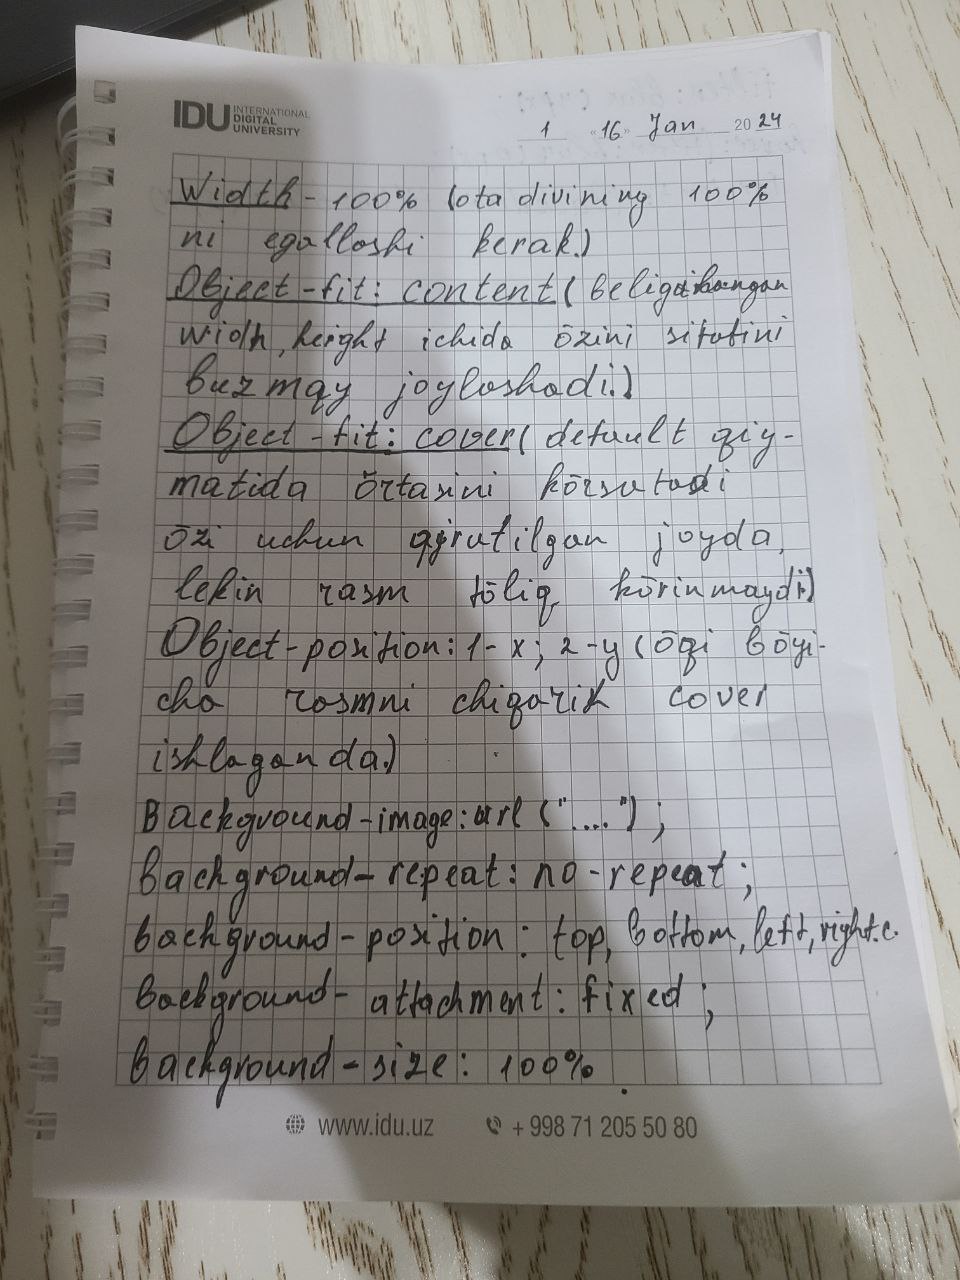 IDU INTERNATIONAL
DIGITAL
UNIVERSITY
1 "16" Jan 2024
Width - 100% (ota divining 100%
ni egalloshi kerak.)
Object-fit: content (
width, height ichida ōzini sifatini
buzmay joyloshadi.)
Object-fit: cover (default qiy-
matida ōrtasini kōrsatadi
ōzi uchun ajratilgan joyda,
lekin rasm tōliq kōrinmaydi)
Object-position: 1-x; 2-y (ōqi bōyi-
cha rasmni chiqarish cover
ishlaganda.)
Background-image: url ("....");
background-repeat: no-repeat;
background-position: top, bottom, left, right.c.
background-attachment: fixed;
background-size: 100%.
www.idu.uz + 998 71 205 50 80